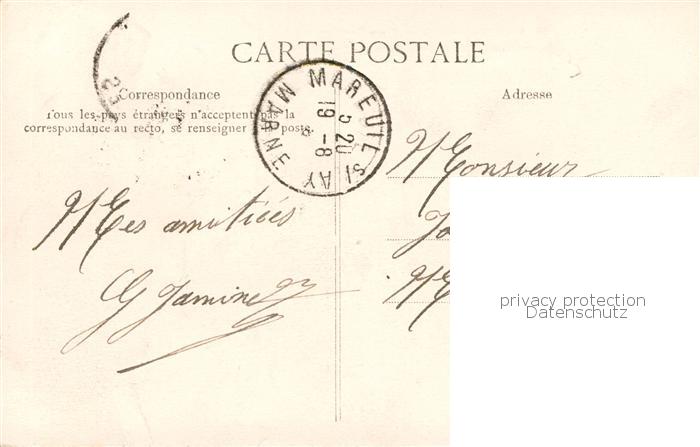 CARTE POSTALE
Correspondance
Tous les pays étrangers n'acceptent pas la
correspondance au recto, se renseigner à la poste.
Adresse
MAREUIL S/ AY
MARNE
5 20
19 -8
Mes amitiées
G Jamine
Monsieur
privacy protection
Datenschutz